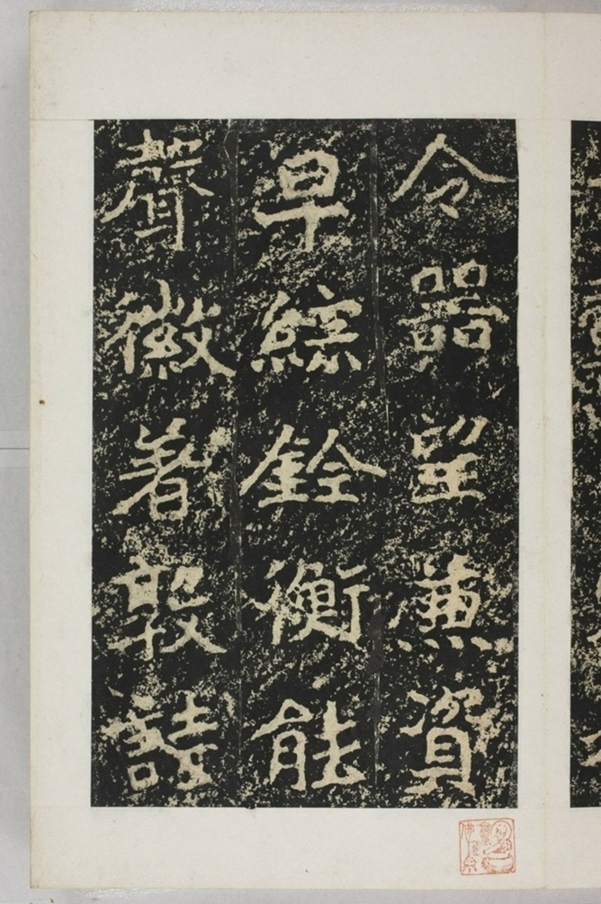 令器望兼資
早綜銓衡能
聲徽著敦詩